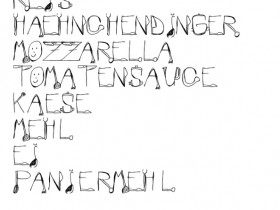 REIS
HAEHNCHENDINGER
MOZZARELLA
TOMATENSAUCE
KAESE
MEHL
EI
PANIERMEHL